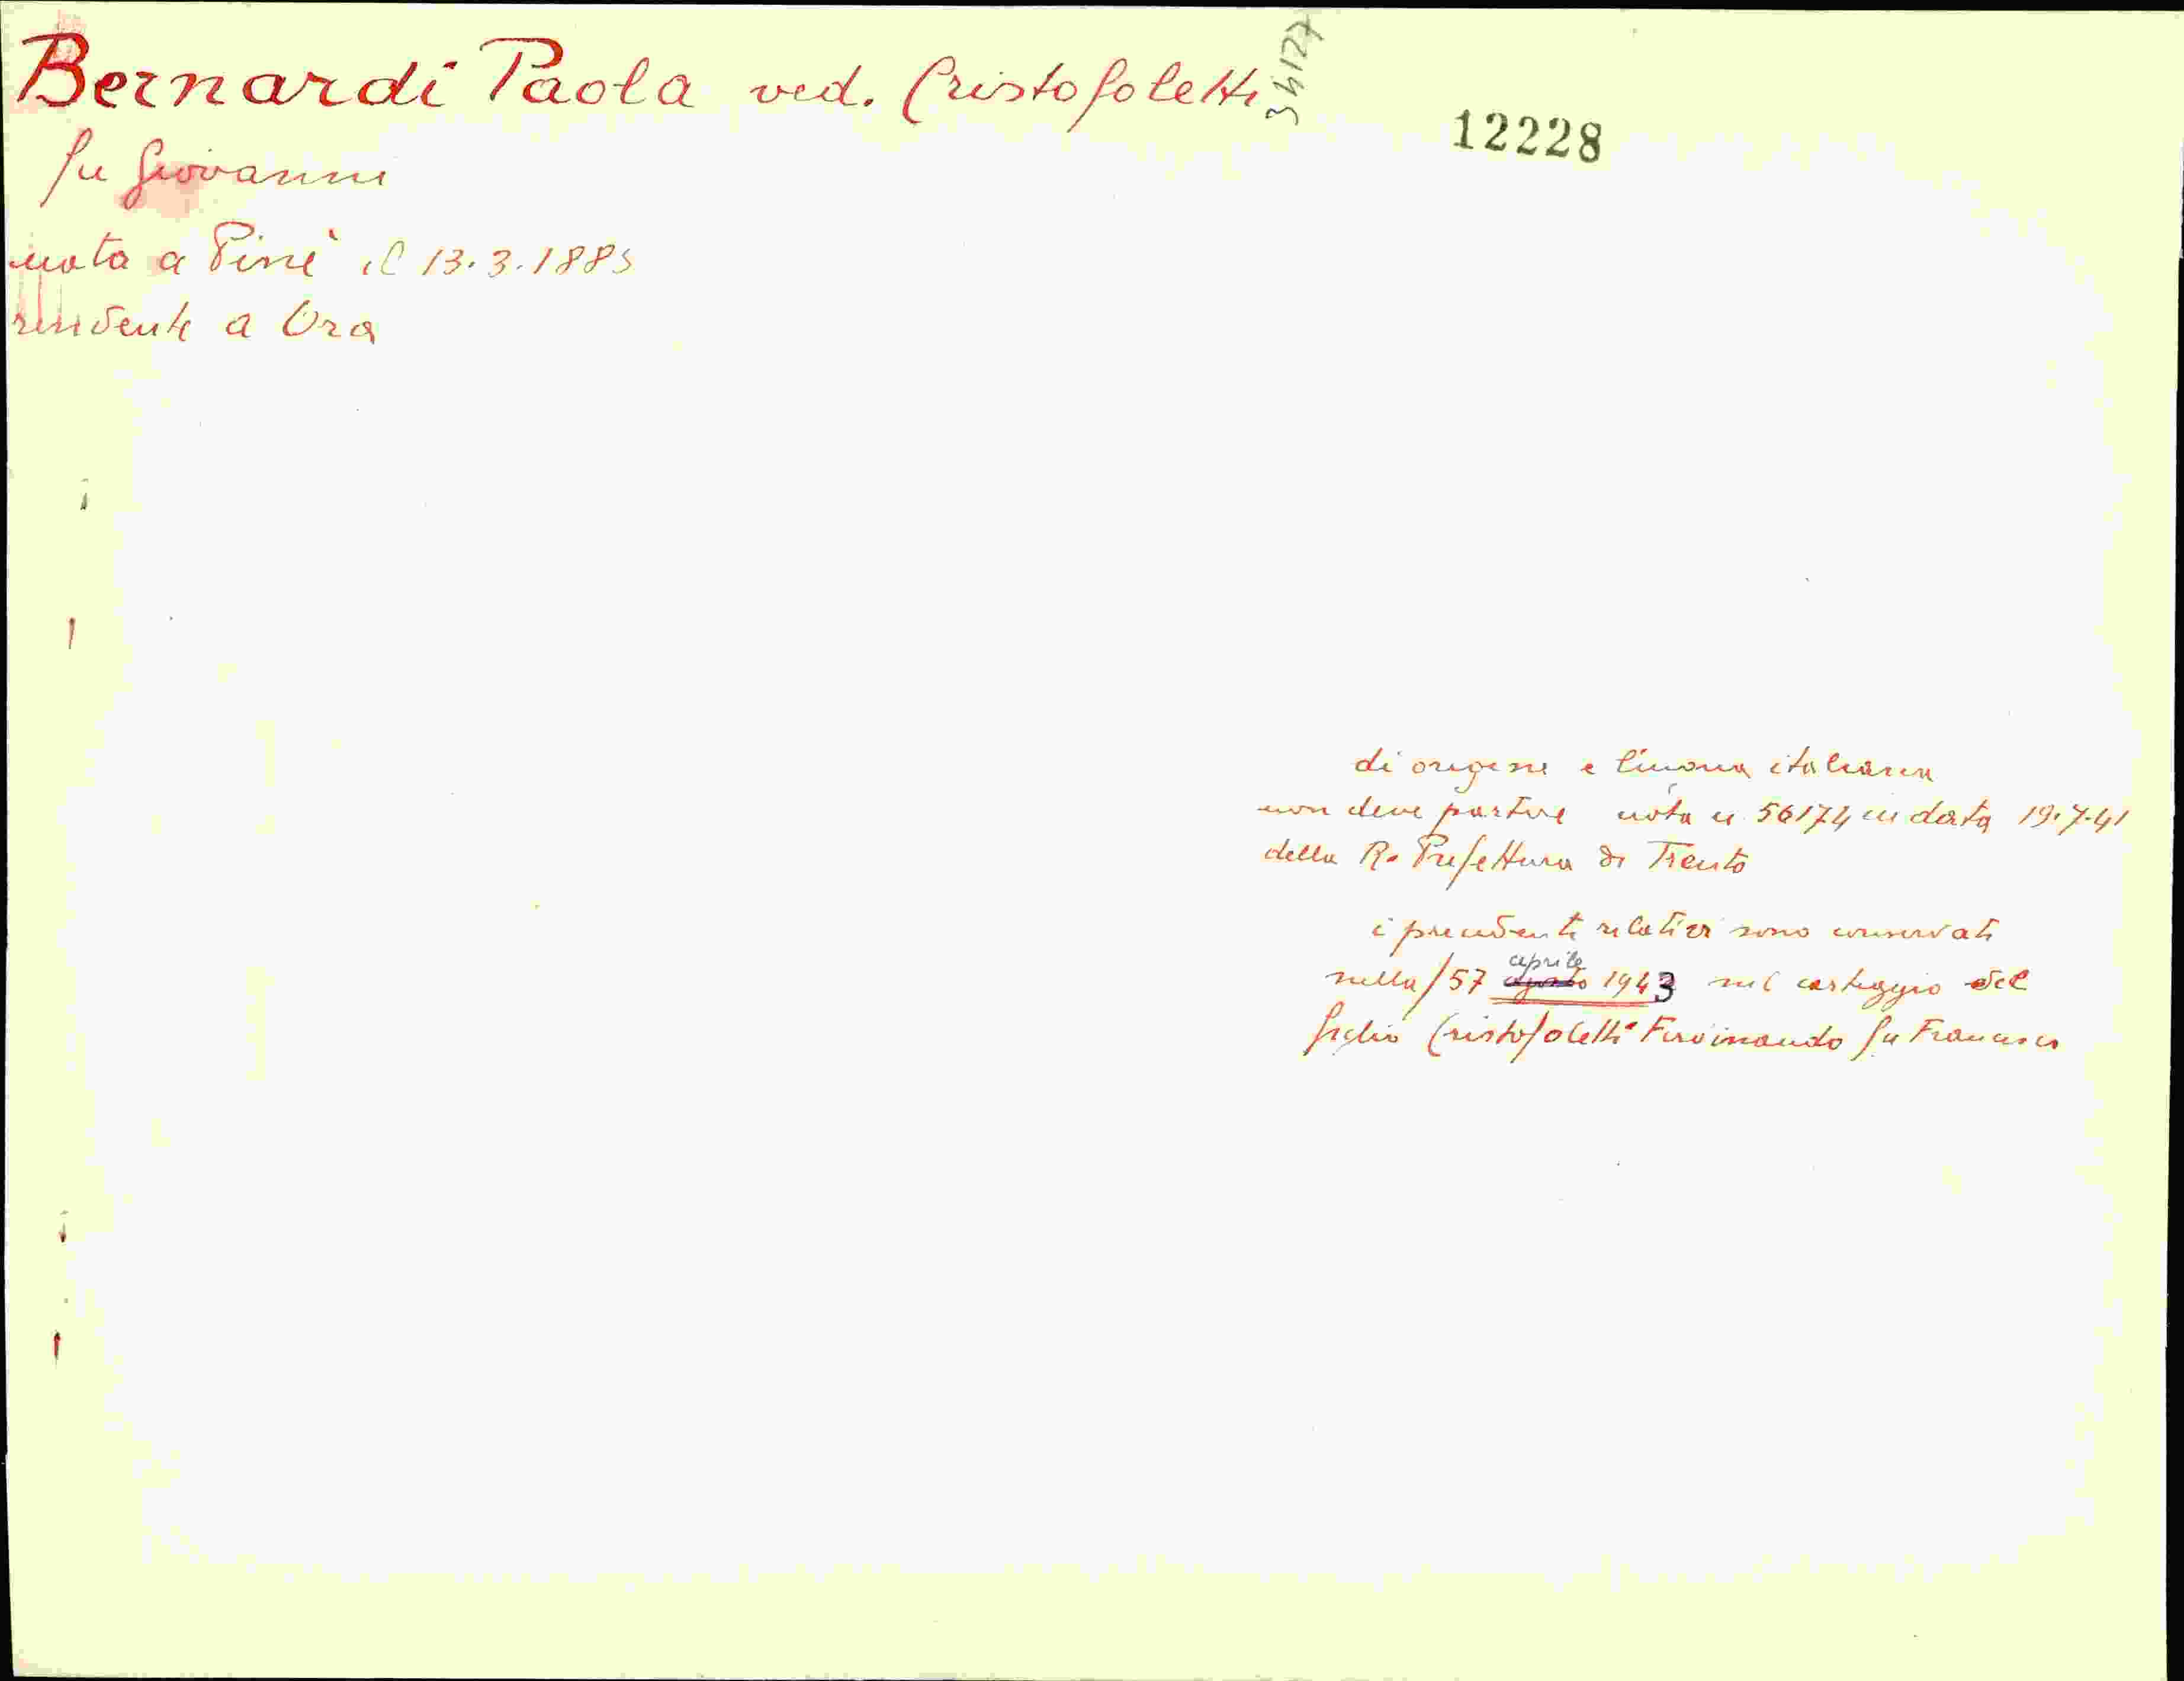 Bernardi Paola ved. Cristofoletti
34127
12228
fu Giovanni
nata a Pinè il 13.3.1885
residente a Ora
di origine e lingua italiana
non deve partire nota n 56174 in data 19.7.41
della R. Prefettura di Trento
i precedenti relativi sono conservati
aprile
nella /57 agosto 1943 nel carteggio del
figlio Cristofoletti Ferdinando fu Francesco